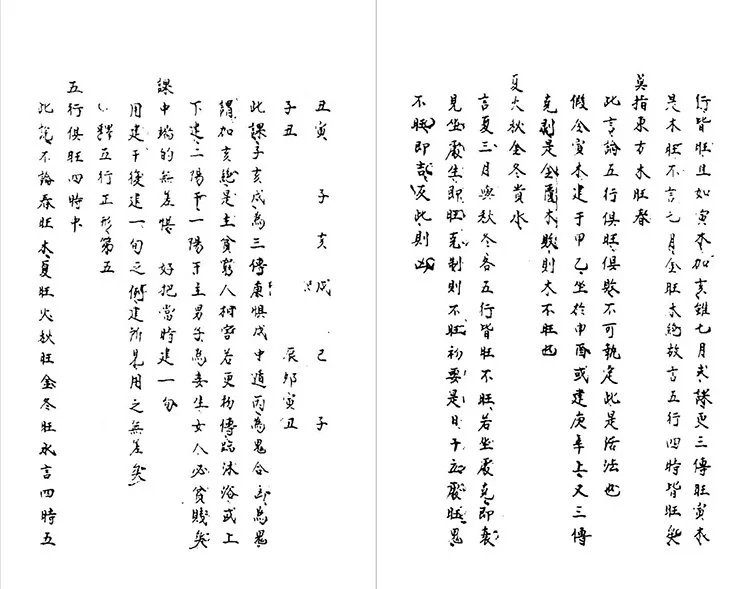 丑寅 子亥戌 己 子
子丑 辰卯寅丑
此課子亥戌為三傳康惧戌中遁丙為鬼合為鬼
加亥絶是主貧窮人相害若更初傳臨沐浴或上
下建二陽干一陽干主男子為妾生女人必貧賤矣
課中端的無差悮 好把當時建一旬
用建干後建一旬之例建所見用之無差矣
釋五行正形第五
五行俱旺四時中
此篇不論春旺木夏旺火秋旺金冬旺水言四時五
行皆旺且如寅木加亥雖七月求課更三傳旺寅木
是木旺不言七月金旺木絶故言五行四時皆旺矣
莫指東方木旺春
此言論五行俱旺俱敗不可執定此是活法也
假令寅木建于甲乙坐於申酉或建庚辛上又三傳
克剥是金木敗則木不旺也
夏火秋金冬貴水
言夏三月與秋冬各五行皆旺不旺若坐處克即衰
見坐處生即旺克制則不旺初要是日干旺鬼
不旺即吉反此則凶